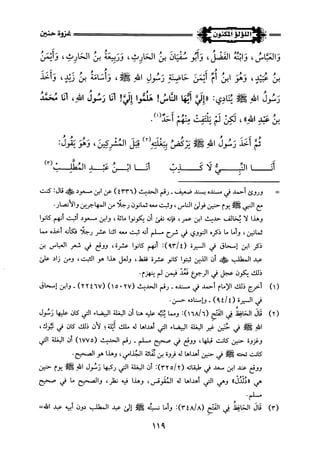 اللؤلؤ المكنون
غزوة حنين
وَالعَبَّاسُ، وَابْنُهُ الفَضْلُ، وَأَبُو سُفْيَانَ بنُ الحَارِثِ، وَرَبِيعَةُ بنُ الحَارِثِ، وَأَيْمَنُ
بنُ عُبَيْدٍ، وَهُوَ ابنُ أُمِّ أَيْمَنَ حَاضِنَةِ رَسُولِ اللهِ ﷺ، وَأُسَامَةُ بنُ زَيْدٍ، وَأَخَذَ
رَسُولُ اللهِ ﷺ يُنَادِي: «إِلَيَّ أَيُّهَا النَّاسُ! هَلُمُّوا إِلَيَّ! أَنَا رَسُولُ اللهِ، أَنَا مُحَمَّدُ
بنُ عَبْدِ اللهِ»، لَكِنْ لَمْ يَلْتَفِتْ مِنْهُمْ أَحَدٌ(١).
ثُمَّ أَخَذَ رَسُولُ اللهِ ﷺ يَرْكُضُ بِبَغْلَتِهِ(٢) قِبَلَ المُشْرِكِينَ، وَهُوَ يَقُولُ:
أَنَا النَّبِيُّ لَا كَذِبْ أَنَا ابْنُ عَبْدِ المُطَّلِبْ(٣)
= وروى أحمد في مسنده بسند ضعيف ـ رقم الحديث (٤٣٣٦) عن ابن مسعود ﷺ قال: كنت
مع النبي ﷺ يوم حنين فولى الناس، وثبت معه ثمانون رجلًا من المهاجرين والأنصار.
وهذا لا يُخالف حديث ابن عمر، فإنه نفى أن يكونوا مائة، وابن مسعود أثبت أنهم كانوا
ثمانين، وأما ما ذكره النووي في شرح مسلم أنه ثبت معه اثنا عشر رجلًا فكأنه أخذه مما
ذكر ابن إسحاق في السيرة (٩٣/٤): أنهم كانوا عشرة، ووقع في شعر العباس بن
عبد المطلب ﷺ أن الذين ثبتوا كانو عشرة فقط، ولعل هذا هو الثبت، ومن زاد على
ذلك يكون عجل في الرجوع فعُدَّ فيمن لم ينهزم.
(١) أخرج ذلك الإمام أحمد في مسنده ـ رقم الحديث (١٥٠٢٧) (٢٢٤٦٧) ـ وابن إسحاق
في السيرة (٩٤/٤) ـ وإسناده حسن.
(٢) قَالَ الحَافِظُ فِي الفَتْحِ (١٦٨/٦): ومما يُنَبَّه عليه هنا أن البغلة البيضاء التي كان عليها رَسُول
اللهِ ﷺ في حُنين غير البغلة البيضاء التي أهداها له ملك أَيْلة؛ لأن ذلك كان في تَبُوك،
وغزوة حنين كانت قبلها، ووقع في صحيح مسلم ـ رقم الحديث (١٧٧٥) أن البغلة التي
كانت تحته ﷺ في حنين أهداها له فروة بن نُفَاثة الجُذَامي، وهذا هو الصحيح.
ووقع عند ابن سعد في طبقاته (٣٢٥/٢): أن البغلة التي ركبها رَسُول اللهِ ﷺ يوم حنين
هي «دُلْدُل» وهي التي أهداها له المُقوقس، وهذا فيه نظر، والصحيح ما في صحيح
مسلم.
(٣) قَالَ الحَافِظُ فِي الفَتْحِ (٣٤٨/٨): وأما نسبته ﷺ إلى عبد المطلب دون أبيه عبد الله=
١١٩